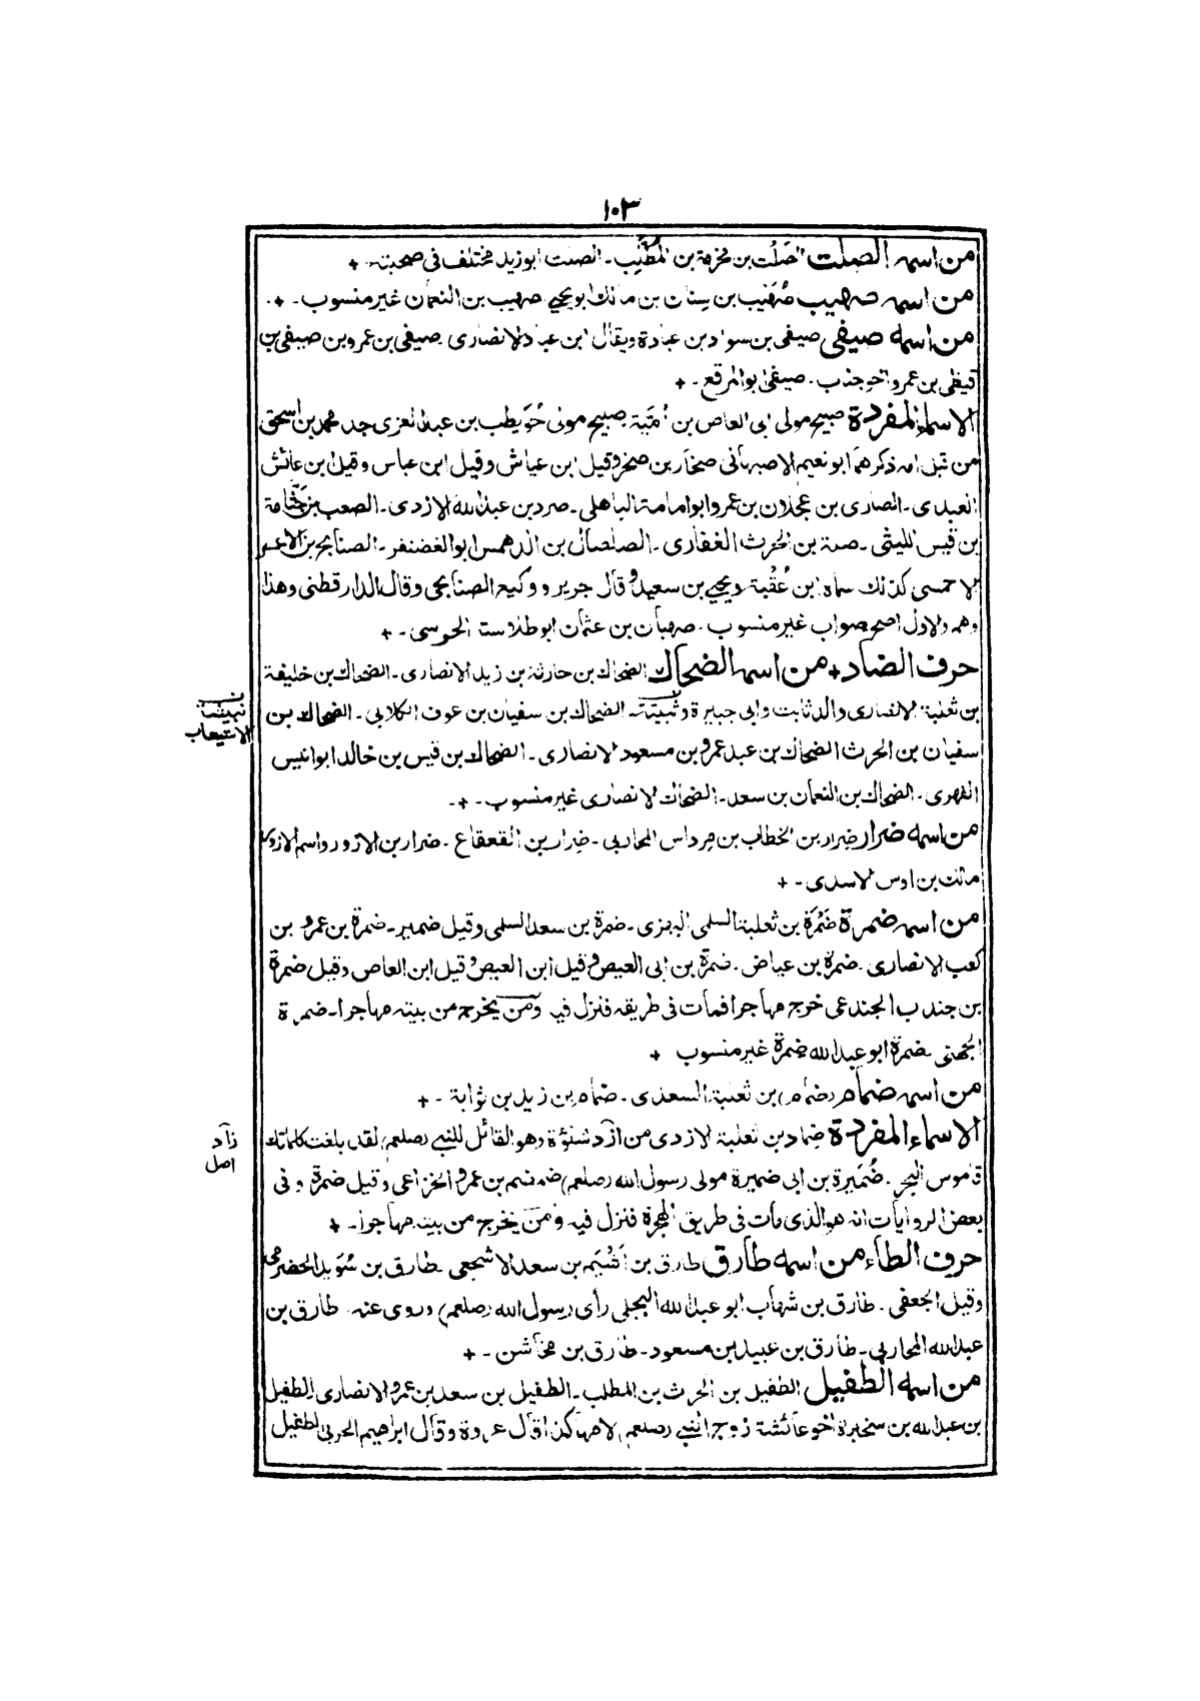 ١٠٣
من اسمه الصلت الصَلْت بن مخرمة بن المطلب ـ الصلت ابوزيد مختلف فى صحبته ـ +
من اسمه صهيب صُهَيْب بن سِنان بن مالك ابو يحيى صهيب بن النعمان غير منسوب ـ +
من اسمه صيفى صيفى بن سواد بن عبادة ويقال ابن عباد الانصارى ـ صيفى بن عمرو بن صيفى بن
قيظى بن عمرو اخو جذب ـ صيفى ابو المرقع ـ +
الاسماء المفردة صبيح مولى ابى العاص بن اُمَيّة ـ صبيح مولى حُوَيطب بن عبد العزى جد محمد بن اسحق
من قبل امه ذكرهما ابو نعيم الاصبهانى صخار بن صخر وقيل ابن عياش وقيل ابن عباس وقيل ابن عائش
العبدى ـ الصارى بن عجلان بن عمرو ابو امامة الباهلى ـ صرد بن عبد الله الازدى ـ الصعب بن جَثّامة
بن قيس الليثى ـ صمة بن الحرث الغفارى ـ الصلصال بن الدهمس ابو الغضنفر ـ الصنابح بن الاعسر
الاحمسى كذلك سماه ابن عُقْبة ويحيى بن سعيد وقال جرير ووكيع الصنابحى وقال الدارقطنى وهذا
وهم والاول اصح صواب غير منسوب ـ صهبان بن عثمان ابو طلاسة الحرسى ـ +
حرف الضاد + من اسمه الضحاك الضحاك بن حارثة بن زيد الانصارى ـ الضحاك بن خليفة
بن ثعلبة الانصارى والد ثابت وابى جبيرة وثبيتة ـ الضحاك بن سفيان بن عوف الكلابى ـ الضحاك بن
ن
نبيشة
الاستيعاب
سفيان بن الحرث الضحاك بن عبد عمرو بن مسعود الانصارى ـ الضحاك بن قيس بن خالد ابو انيس
الفهرى ـ الضحاك بن النعمان بن سعد ـ الضحاك الانصارى غير منسوب ـ +
من اسمه ضرار ضِرار بن الخطاب بن مرداس المحاربى ـ ضِرار بن القعقاع ـ ضرار بن الازور واسم الازور
مالك بن اوس الاسدى ـ +
من اسمه ضمرة ضَمْرَة بن ثعلبة السلمى البهزى ـ ضمرة بن سعد السلمى وقيل ضمير ـ ضمرة بن عمرو بن
كعب الانصارى ـ ضمرة بن عياض ـ ضمرة بن ابى العيص وقيل ابن العيص وقيل ابن العاص وقيل ضمرة
بن جندب الجندعى خرج مهاجرا فمات فى طريقه فنزل فيه ومن يخرج من بيته مهاجرا ـ ضمرة
الجهنى ـ ضمرة ابو عبد الله ضمرة غير منسوب +
من اسمه ضمام (ضمام) بن ثعلبة السعدى ـ ضمام بن زيد بن ثوابة ـ +
الاسماء المفردة ضِماد بن ثعلبة الازدى من ازد شنؤة وهو القائل للنبي (صلعم) لقد بلغت كلماتك
زآد
اصل
قاموس البحر ـ ضُمَيرة بن ابى ضميرة مولى رسول الله (صلعم) ضمضم بن عمرو الخزاعى وقيل ضمرة وفى
بعض الروايات انه هو الذى مات فى طريق الهجرة فنزل فيه ومن يخرج من بيته مهاجرا ـ +
حرف الطاء من اسمه طارق طارق بن اَشْيَم بن سعد الاشجعى ـ طارق بن سُوَيد الحضرمى
وقيل الجعفى ـ طارق بن شهاب ابو عبد الله البجلى رأى رسول الله (صلعم) وروى عنه طارق بن
عبد الله المحاربى ـ طارق بن عبيد بن مسعود ـ طارق بن مخاشن ـ +
من اسمه الطفيل الطفيل بن الحرث بن المطلب ـ الطفيل بن سعد بن عمرو الانصارى الطفيل
بن عبد الله بن سخبرة اخو عائشة زوج النبي (صلعم) لامها كذا قال عروة وقال ابراهيم الحربى الطفيل